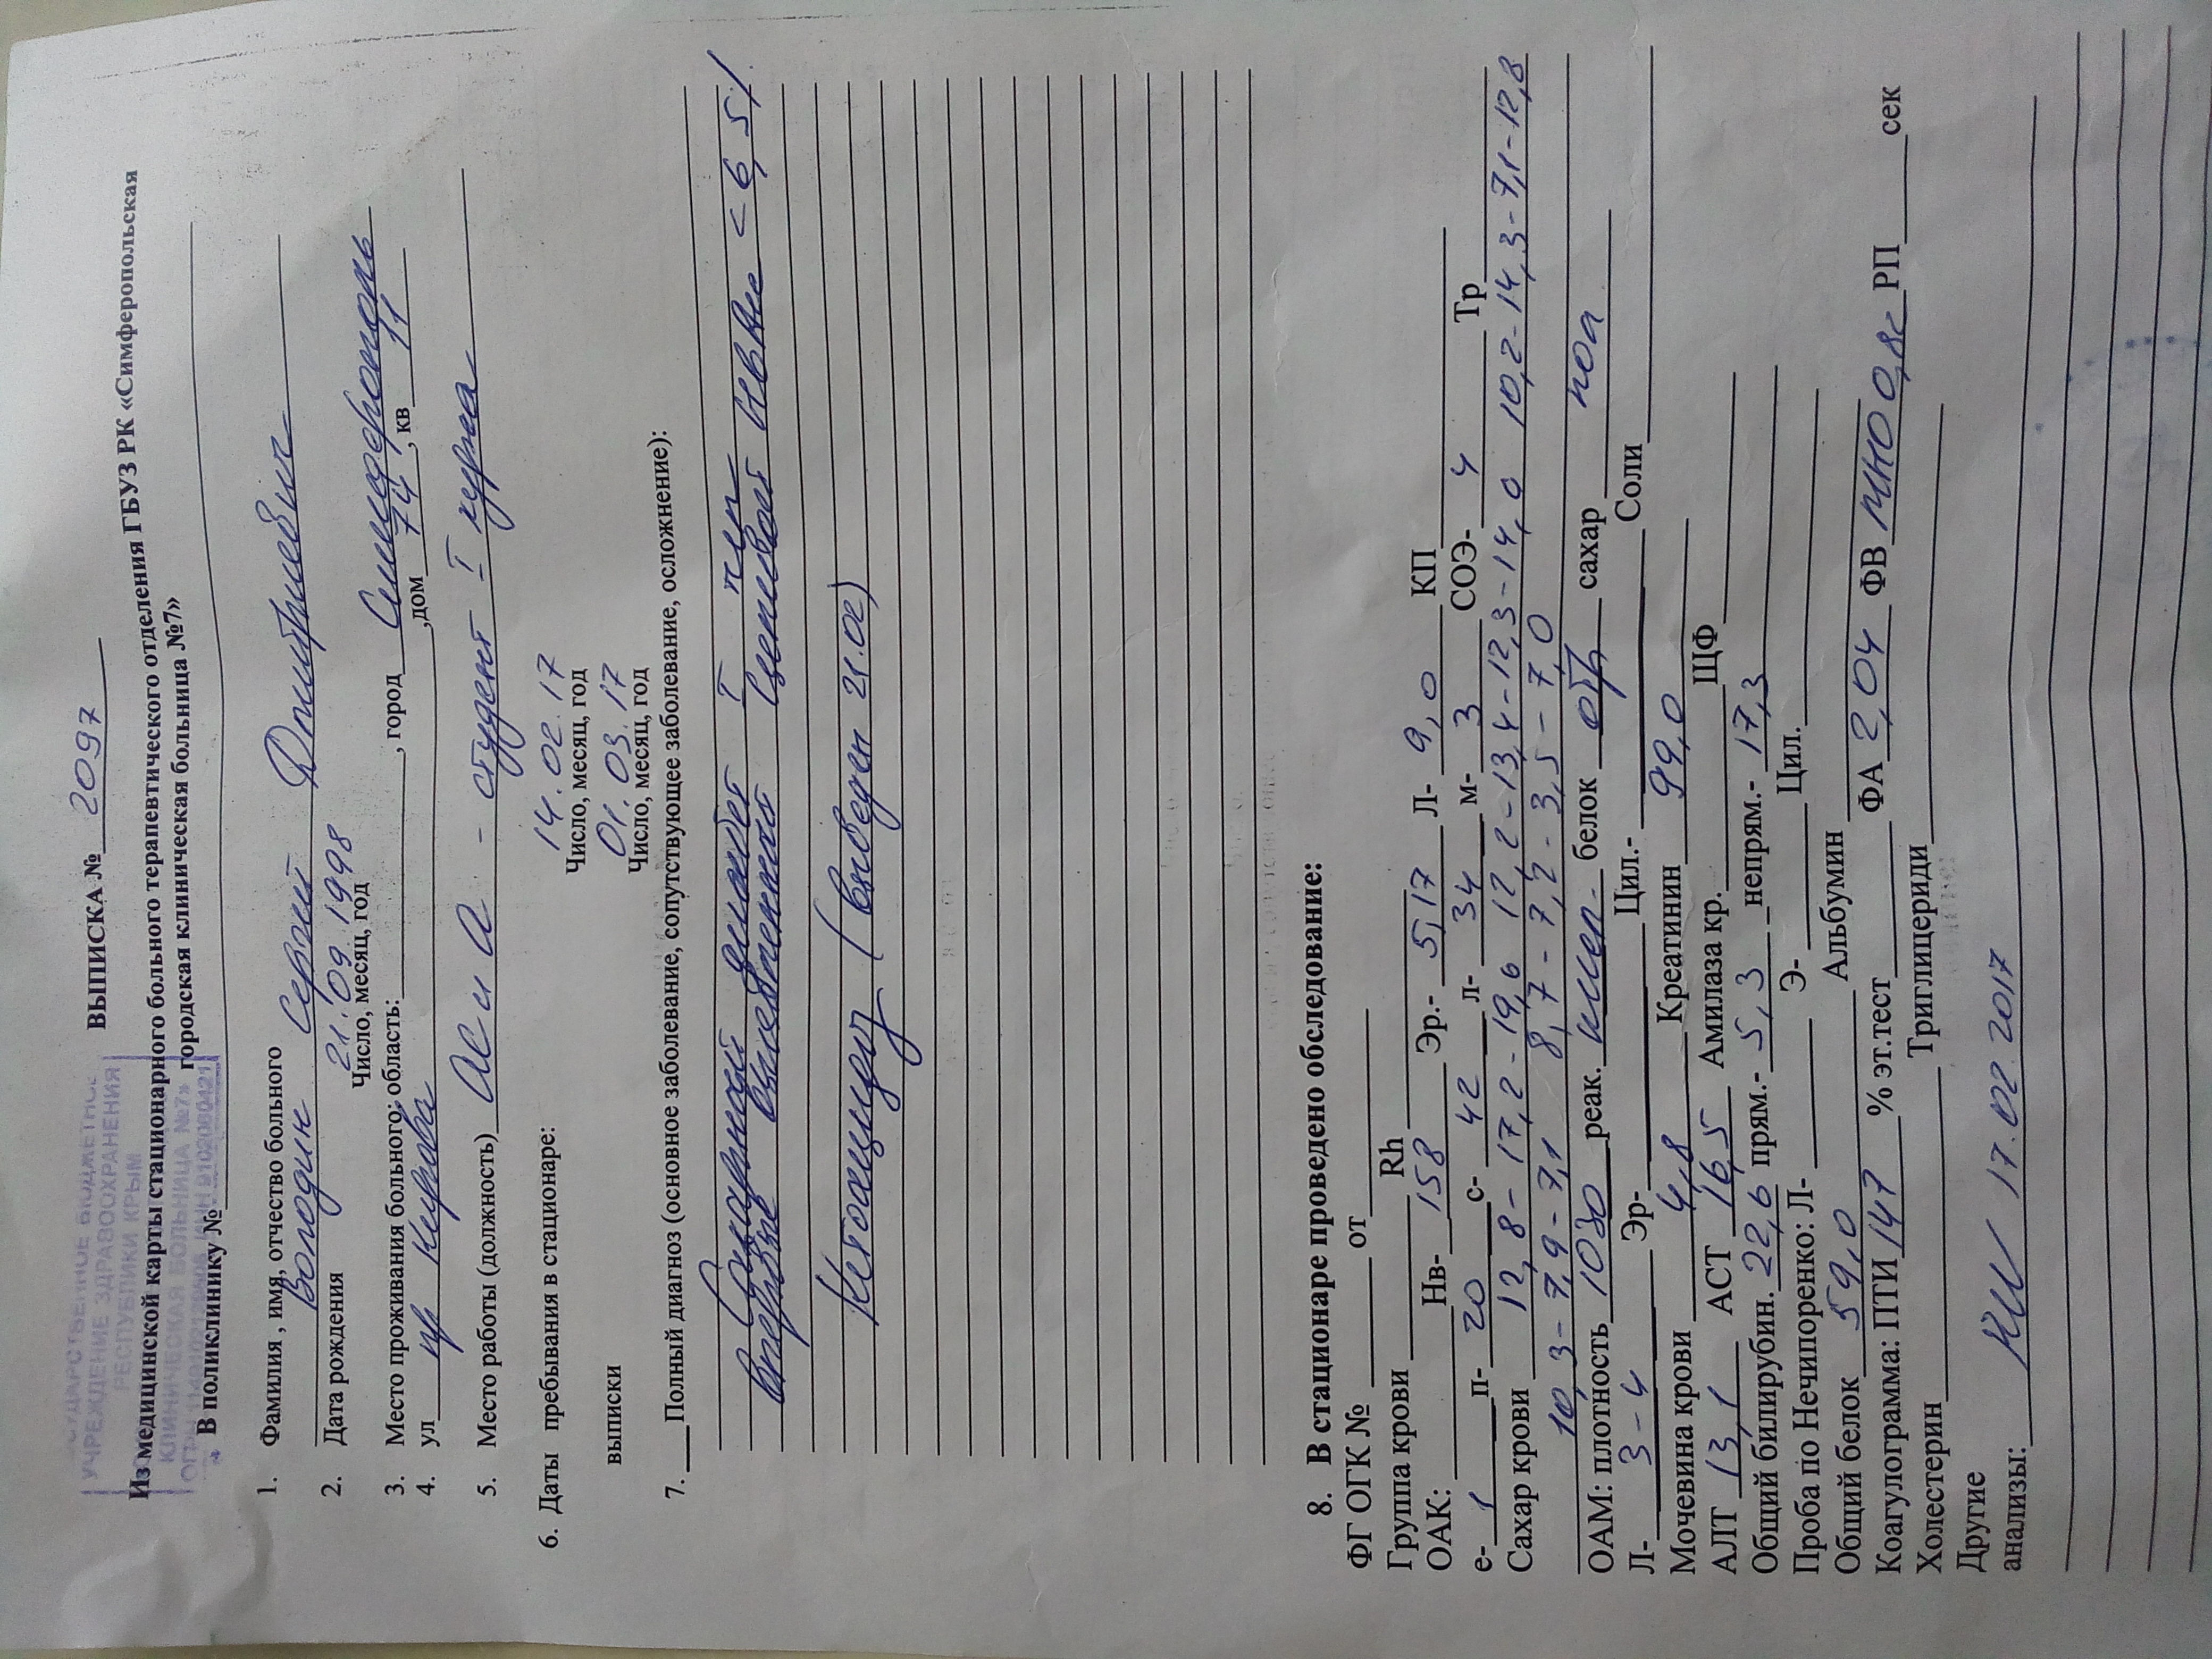 ГОСУДАРСТВЕННОЕ БЮДЖЕТНОЕ
УЧРЕЖДЕНИЕ ЗДРАВООХРАНЕНИЯ
РЕСПУБЛИКИ КРЫМ
КЛИНИЧЕСКАЯ БОЛЬНИЦА №7»
ВЫПИСКА № 2097
Из медицинской карты стационарного больного терапевтического отделения ГБУЗ РК «Симферопольская
городская клиническая больница №7»
В поликлинику №
1. Фамилия , имя, отчество больного
Володик Сергій Дмитриевич
2. Дата рождения 21.09.1998
Число, месяц, год
3. Место проживания больного: область: , город Симферополь
4. ул пр Кирова ,дом 74 , кв 11
5. Место работы (должность) АСиА - студент I курса
6. Даты пребывания в стационаре: 14.02.17
Число, месяц, год
выписки 01.03.17
Число, месяц, год
7. Полный диагноз (основное заболевание, сопутствующее заболевание, осложнение):
Сахарный диабет I тип
впервые выявленный Целевой НвА1с < 6,5%
Кетоацидоз (выведен 21.02)
8. В стационаре проведено обследование:
ФГ ОГК № от
Группа крови Rh
ОАК: Нв- 158 Эр.- 5,17 Л- 9,0 КП
е- 1 п- 20 с- 42 л- 34 м- 3 СОЭ- 4 Тр
Сахар крови 12,8-17,2-19,6 12,2-13,4-12,3-14,0 10,2-14,3-7,1-12,8
10,3-7,9-7,1 8,7-7,2-3,5-7,0
ОАМ: плотность 1030 реак. кисл- белок отр сахар
Л- 3-4 Эр- Цил.- Соли
Мочевина крови 4,8 Креатинин 99,0
АЛТ 13,1 АСТ 16,5 Амилаза кр. ЩФ
Общий билирубин. 22,6 прям.- 5,3 непрям.- 17,3
Проба по Нечипоренко: Л- Э- Цил.
Общий белок 59,0 Альбумин
Коагулограмма: ПТИ 147 % эт.тест ФА 2,04 ФВ МНО 0,82 РП сек
Холестерин Триглицериди
Другие
анализы: 17.02.2017